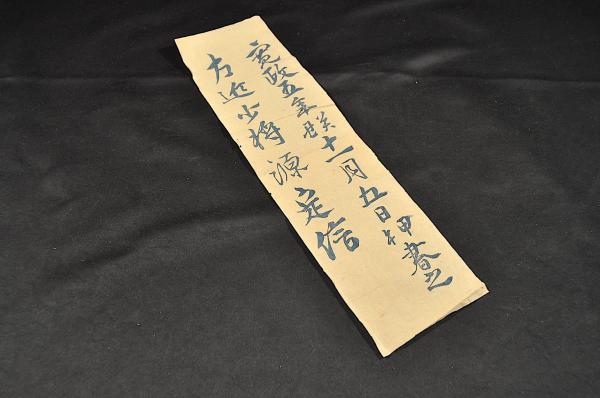 寛政五年癸丑十一月五日押書之
左近少将源定信